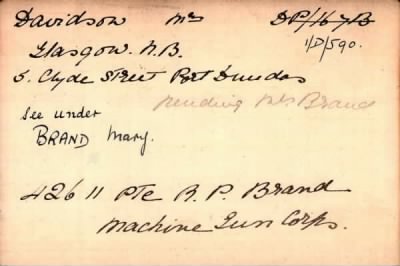 Davidson Mrs DP/1678
Glasgow. N.B. 1/D/590.
5. Clyde Street Port Dundas
pending Mrs Brand
See under
BRAND Mary.
42611 Pte R. P. Brand
Machine Gun Corps.